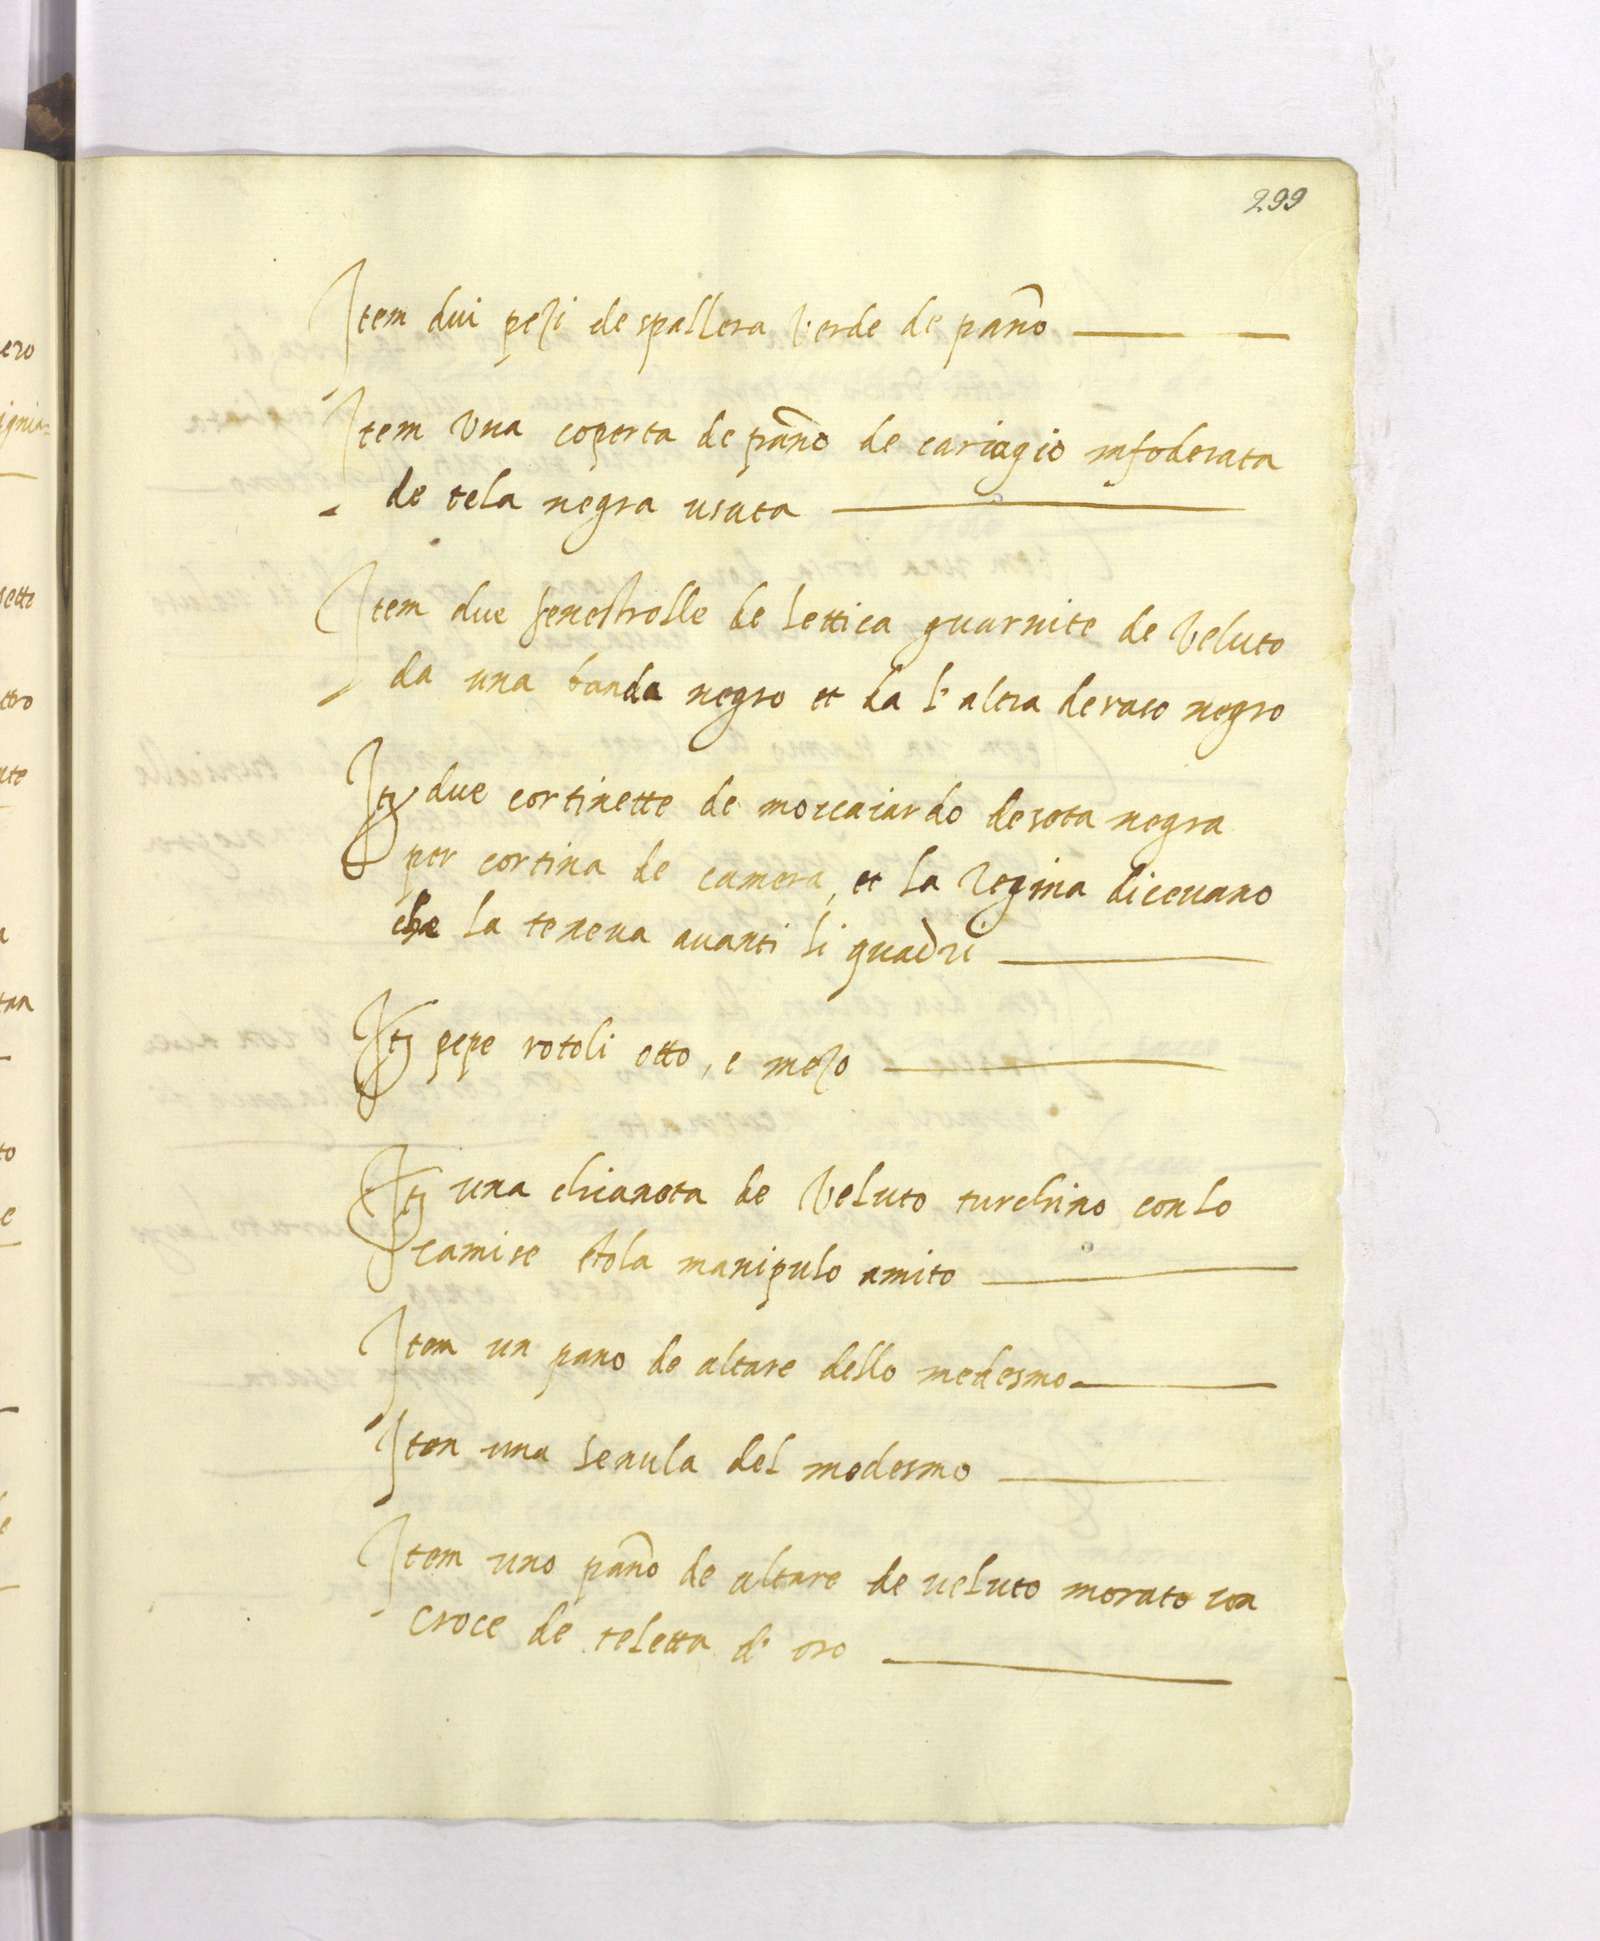 299
Item dui pezi de spallera verde de pan̄o
Item una coperta de pan̄o de cariagio infoderata
de tela negra usata
Item due fenestrelle de lettica guarnite de veluto
da una banda negro et da l'altra de raso negro
Itē due cortinette de moccaiardo de seta negra
per cortina de camera, et la Regina dicevano
che la teneva avanti li quadri
Itē pepe rotoli otto, e mezo
Itē una chianeta de veluto turchino con lo
camise stola manipulo amito
Item un pano de altare dello medesmo
Item una senula del medesmo
Item uno pan̄o de altare de veluto morato con
croce de teletta d'oro